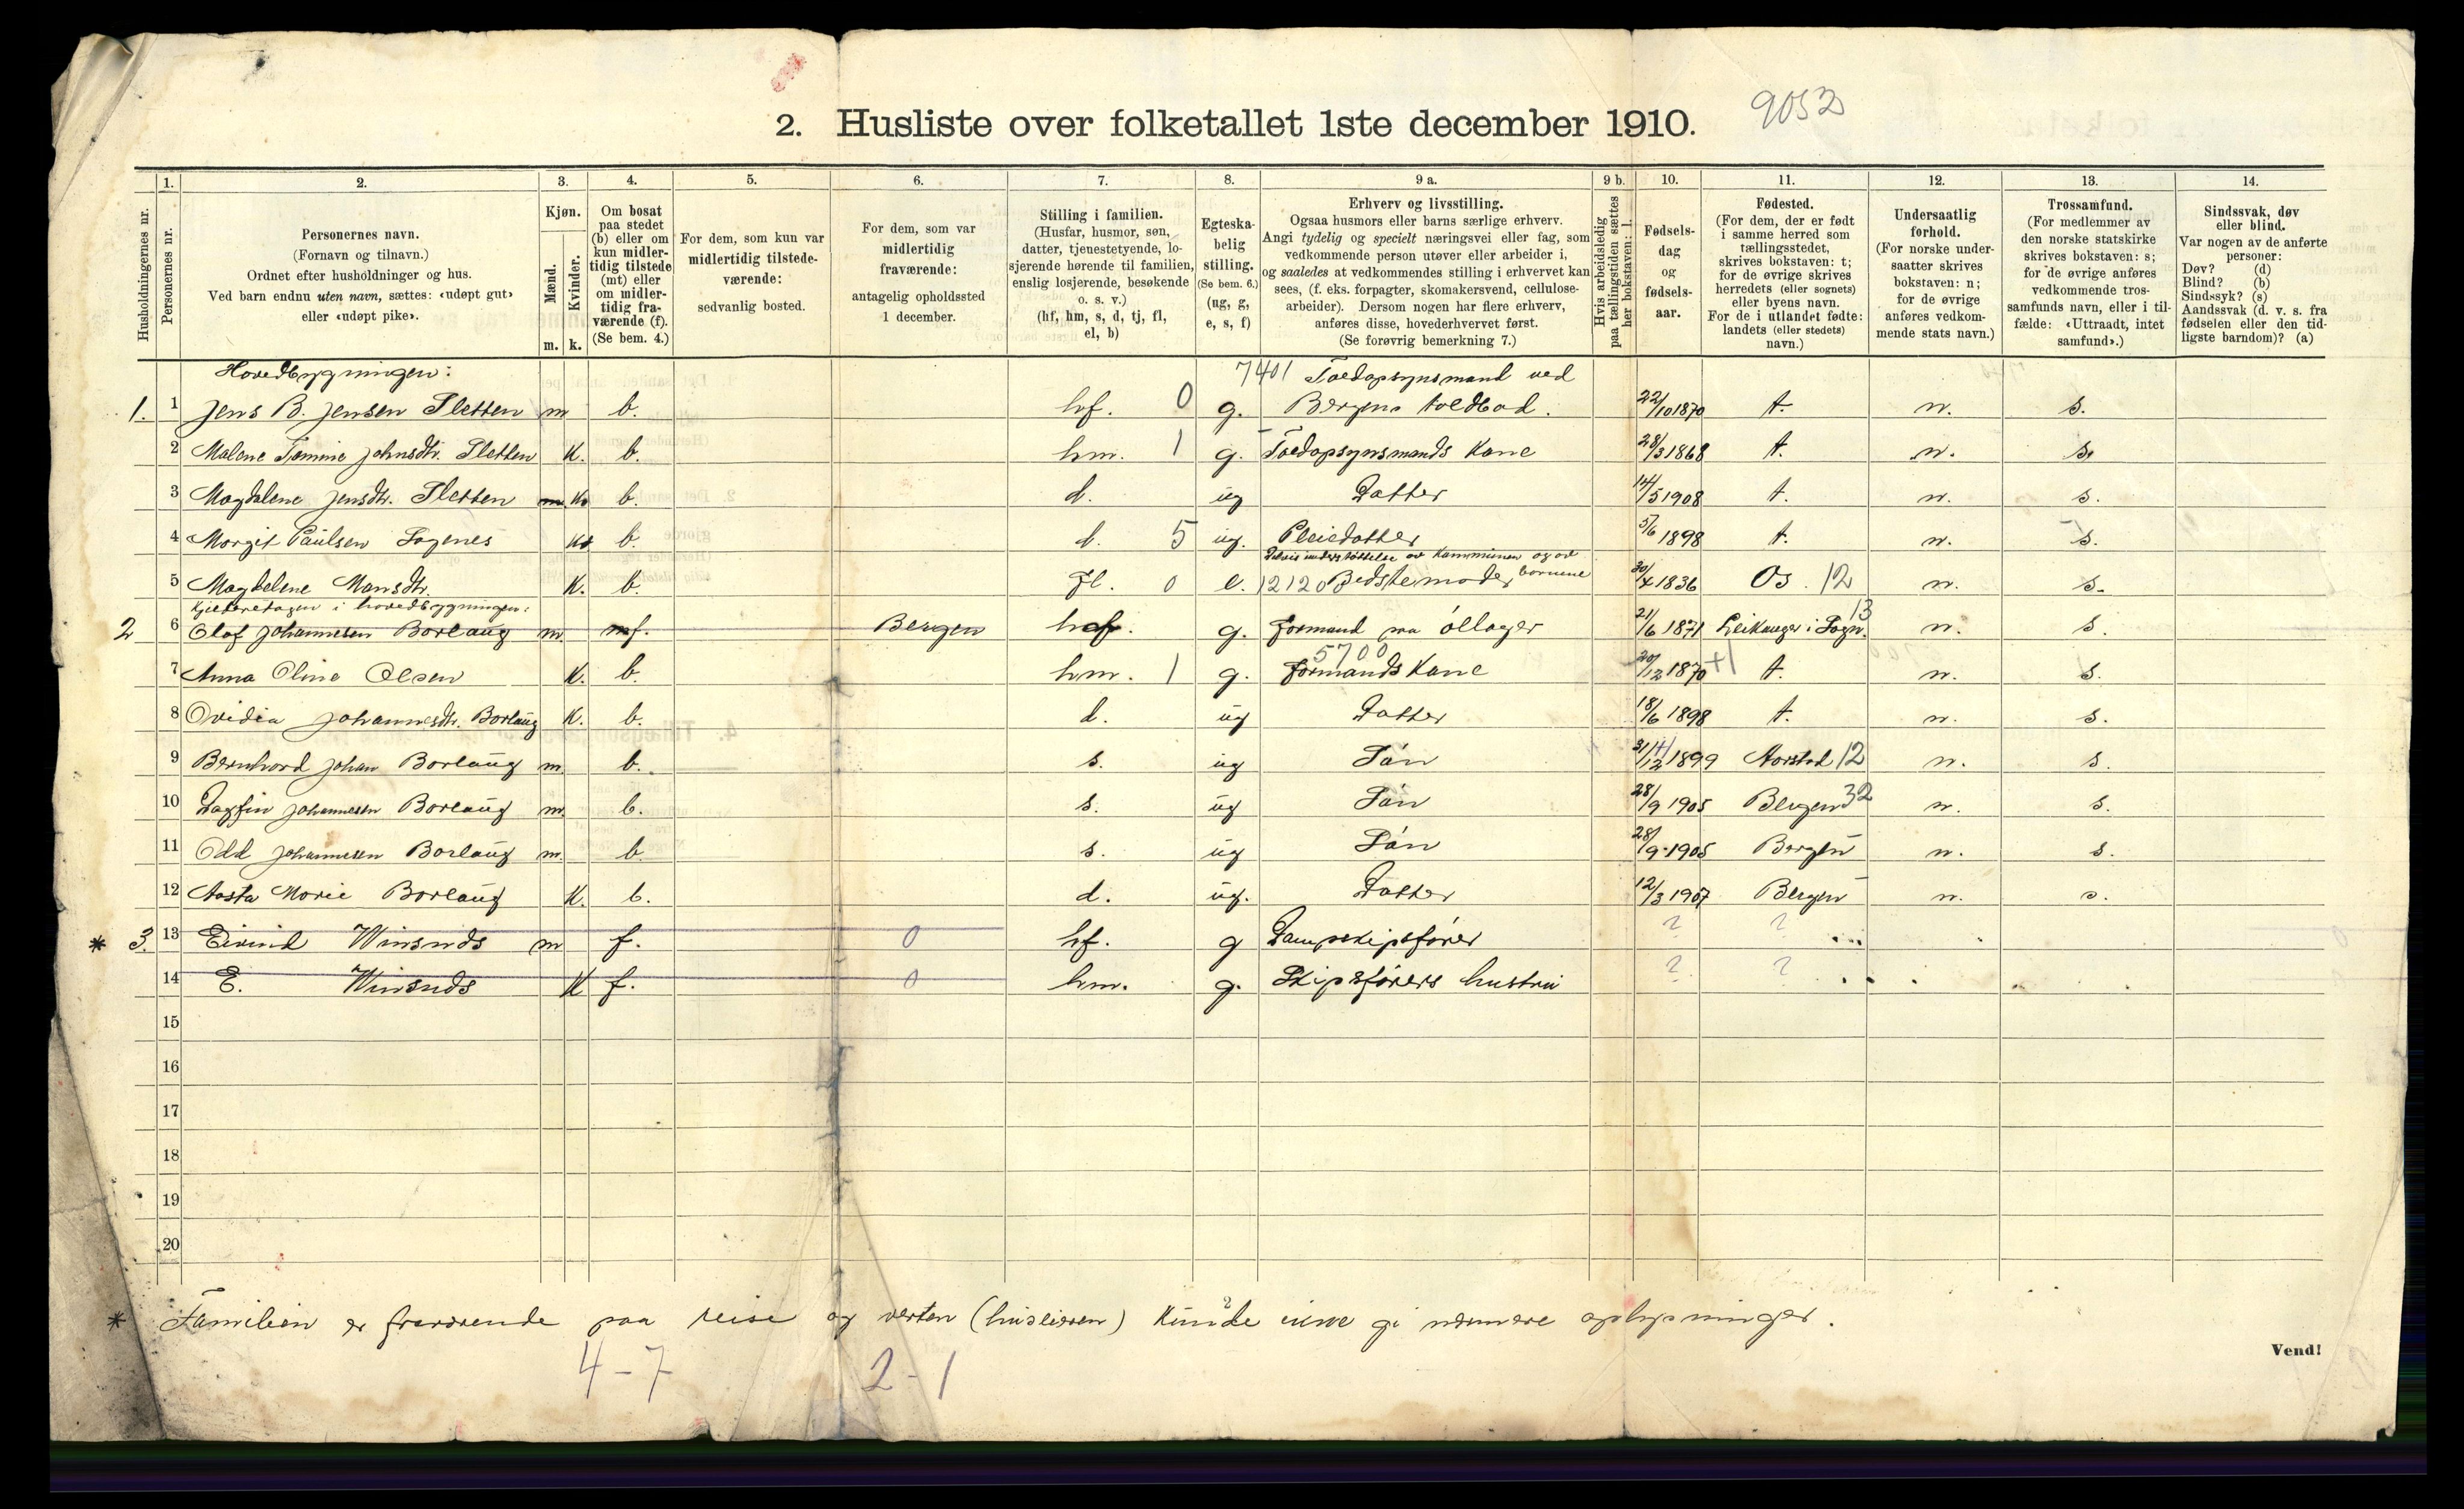 2. Husliste over folketallet 1ste december 1910. 9052
Husholdningernes nr.
1. Personernes nr.
2. Personernes navn.
(Fornavn og tilnavn.)
Ordnet efter husholdninger og hus.
Ved barn endnu uten navn, sættes: «udøpt gut»
eller «udøpt pike».
3. Kjøn.
Mænd. Kvinder.
m. k.
4. Om bosat
paa stedet
(b) eller om
kun midler-
tidig tilstede
(mt) eller
om midler-
tidig fra-
værende (f).
(Se bem. 4.)
5. For dem, som kun var
midlertidig tilstede-
værende:
sedvanlig bosted.
6. For dem, som var
midlertidig
fraværende:
antagelig opholdssted
1 december.
7. Stilling i familien.
(Husfar, husmor, søn,
datter, tjenestetyende, lo-
sjerende hørende til familien,
enslig losjerende, besøkende
o. s. v.)
(hf, hm, s, d, tj, fl,
el, b)
8. Egteska-
belig
stilling.
(Se bem. 6.)
(ug, g,
e, s, f)
9 a. Erhverv og livsstilling.
Ogsaa husmors eller barns særlige erhverv.
Angi tydelig og specielt næringsvei eller fag, som
vedkommende person utøver eller arbeider i,
og saaledes at vedkommendes stilling i erhvervet kan
sees, (f. eks. forpagter, skomakersvend, cellulose-
arbeider). Dersom nogen har flere erhverv,
anføres disse, hovederhvervet først.
(Se forøvrig bemerkning 7.)
9 b. Hvis arbeidsledig
paa tællingstiden sættes
her bokstaven: l.
10. Fødsels-
dag
og
fødsels-
aar.
11. Fødested.
(For dem, der er født
i samme herred som
tællingsstedet,
skrives bokstaven: t;
for de øvrige skrives
herredets (eller sognets)
eller byens navn.
For de i utlandet fødte:
landets (eller stedets)
navn.)
12. Undersaatlig
forhold.
(For norske under-
saatter skrives
bokstaven: n;
for de øvrige
anføres vedkom-
mende stats navn.)
13. Trossamfund.
(For medlemmer av
den norske statskirke
skrives bokstaven: s;
for de øvrige anføres
vedkommende tros-
samfunds navn, eller i til-
fælde: «Uttraadt, intet
samfund».)
14. Sindssvak, døv
eller blind.
Var nogen av de anførte
personer:
Døv? (d)
Blind? (b)
Sindssyk? (s)
Aandssvak (d. v. s. fra
fødselen eller den tid-
ligste barndom)? (a)
Hovedbygningen: 7401 Toldopsynsmand ved
1. 1 Jens B. Jensen Sletten m b. hf. 0 g. Bergens toldbod. 22/10 1870 t. n. s.
2 Malene Tomine Johnsdtr. Sletten K. b. hm. 1 g. Toldopsynsmands Kone 28/3 1868 t. n. s.
3 Magdalene Jensdtr. Sletten m. K. b. d. ug Datter 14/5 1908 t. n. s.
4 Margit Paulsen K. b. d. 5 ug. Pleiedatter 5/6 1898 t. n. s.
Delvis understøttelse av Kommunen og av
5 Magdelene Monsdtr. K. b. Fl. 0 e. 12120 Bedstemoder børnene 30/4 1836 Os. 12 n. s.
Kjelderetagen i hovedbygningen:
2 6 Olaf Johannesen Borlaug m. f. Bergen hf. g. Formand paa øllager 21/6 1871 Leikanger i Sogn. 13 n. s.
5700
7 Anna Oline Olsen K. b. hm. 1 g. Formands Kone 20/12 1870 +1 t. n. s.
8 Ovidia Johannesdtr. Borlaug K. b. d. ug Datter 18/6 1898 t. n. s.
9 Bernhard Johan Borlaug m. b. s. ug Søn 31/12 1899 Aarstad 12 n. s.
10 Dagfin Johannesen Borlaug m. b. s. ug Søn 28/9 1905 Bergen 32 n. s.
11 Odd Johannesen Borlaug m. b. s. ug Søn 28/9 1905 Bergen n. s.
12 Aasta Marie Borlaug K. b. d. ug. Datter 12/3 1907 Bergen n. s.
* 3. 13 Eivind Winsnds m f. 0 hf. g Dampskipsfører ? ?
14 E. Winsnds K f. 0 hm. g. Skipsførers hustru ? ?
15
16
17
18
19
20
* Familien er fraværende paa reise og verten (huseieren) Kunde ikke gi nærmere oplysninger.
Vend!
4 - 7 2 - 1